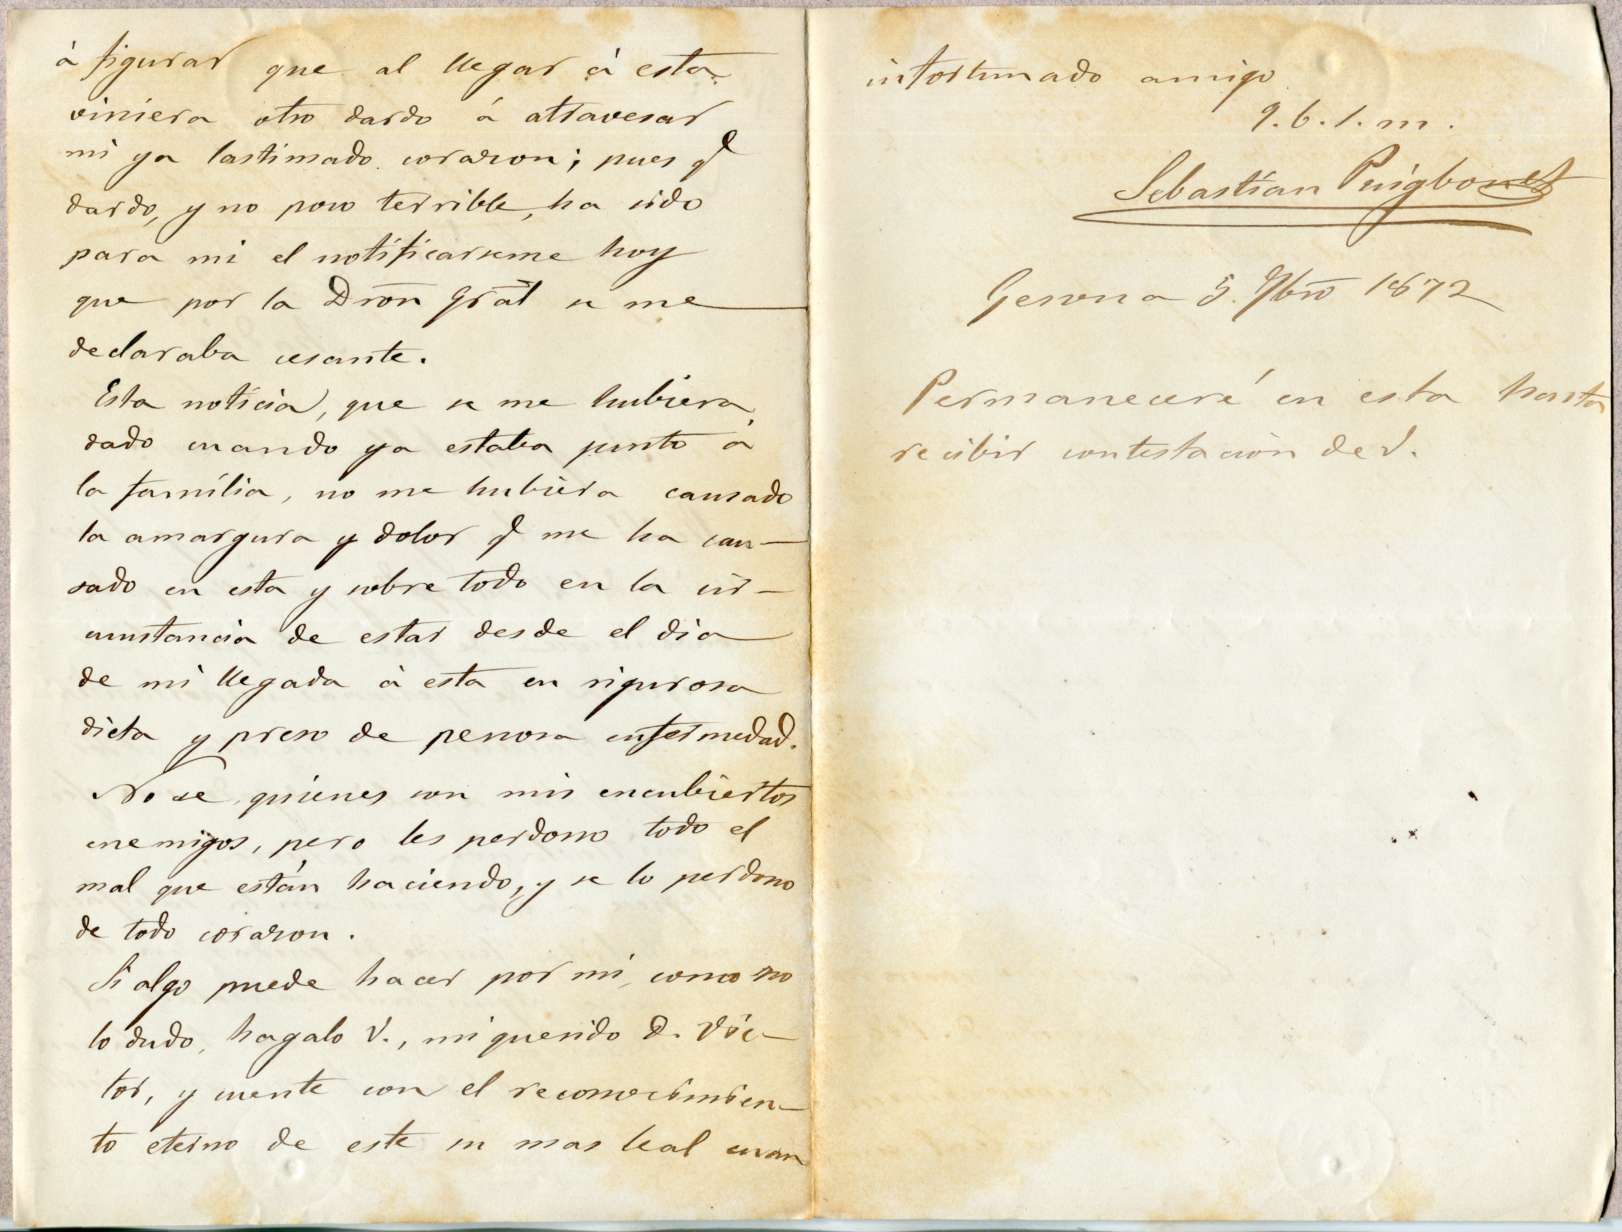 á figurar que al llegar á esta
viniera otro dardo á atravesar
mi ya lastimado corazon; pues q̃
dardo, y no poco terrible, ha sido
para mi el notificarseme hoy
que por la Dron Gral se me
declaraba cesante.
Esta noticia, que se me hubiera
dado cuando ya estaba junto á
la família, no me hubiera causado
la amargura y dolor q̃ me ha cau-
sado en esta y sobre todo en la cir-
cunstancia de estar desde el dia
de mi llegada á esta en rigurosa
dieta y preso de penosa enfermedad.
No se quienes son mis encubiertos
enemigos, pero les perdono todo el
mal que están haciendo, y se lo perdono
de todo corazon.
Si algo puede hacer por mi, como no
lo dudo, hagalo V., mi querido D. Víc-
tor, y cuente con el reconocimien-
to eterno de este su mas leal cuan
infortunado amigo
q. b. s. m.
Sebastian Puigbonet
Gerona 5. 9bro 1872
Permaneceré en esta hasta
recibir contestación de V.